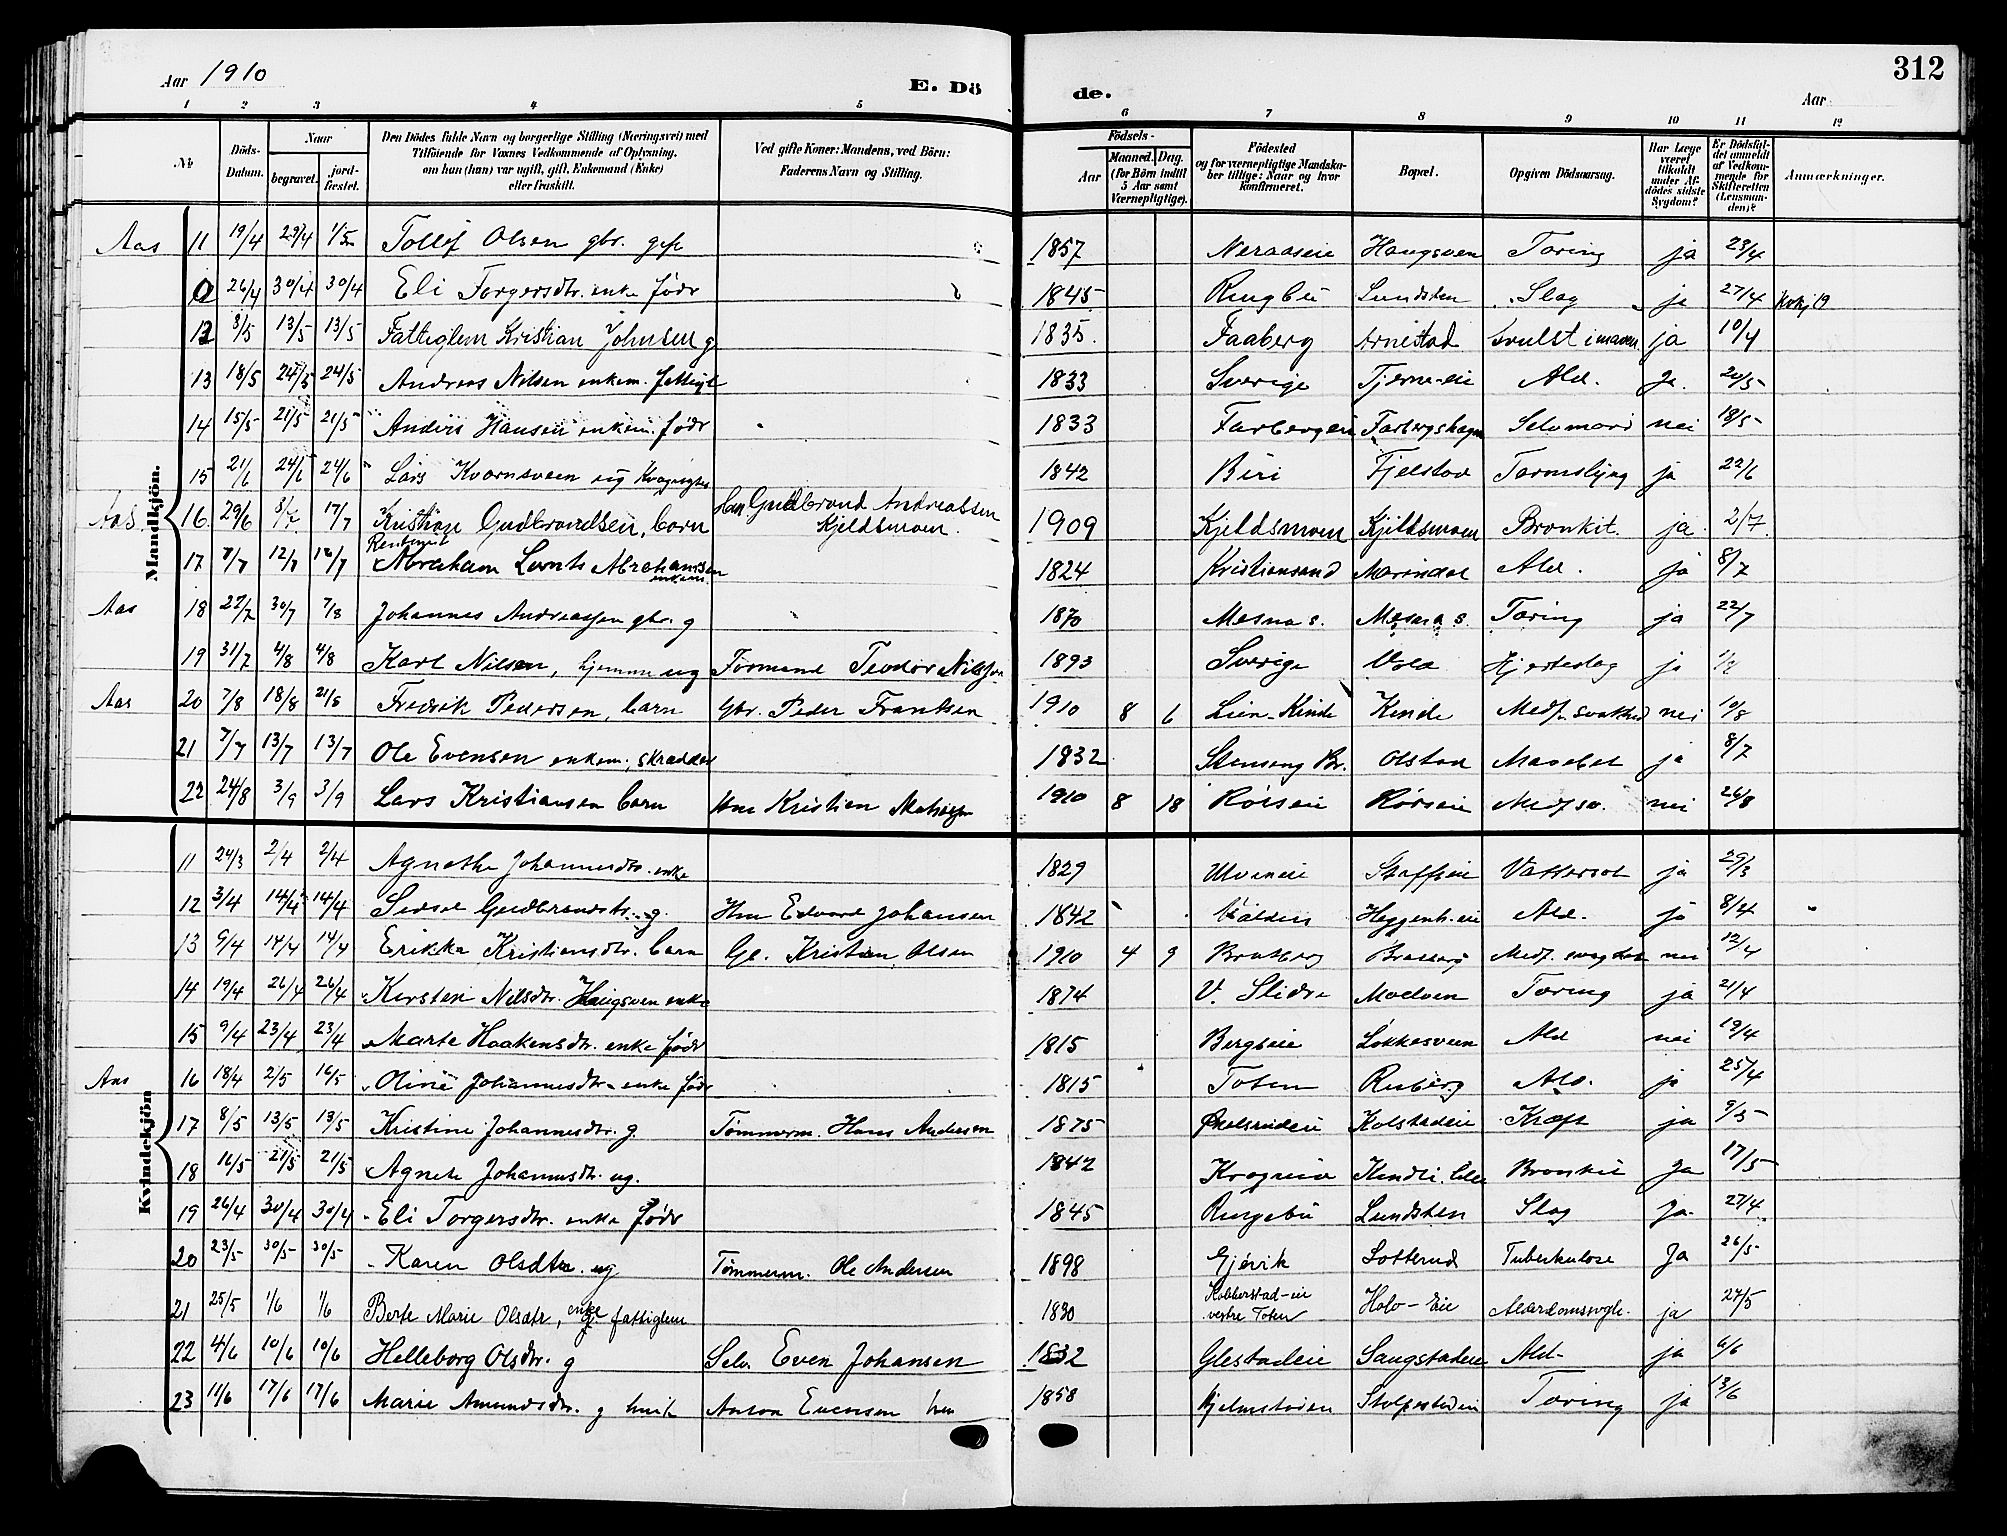 Aar 1910
E. Dö
de.
312
Aar
1 2 3 4 5 6 7 8 9 10 11 12
No
Döds-Datum.
Naar
begravet.
jord-fæstet.
Den Dödes fulde Navn og borgerlige Stilling (Næringsvei) med
Tilföiende for Voxnes Vedkommende af Oplysning,
om han (hun) var ugift, gift, Enkemand (Enke)
eller fraskilt.
Ved gifte Koner: Mandens, ved Börn:
Faderens Navn og Stilling.
Födsels-
Aar
Maaned. Dag.
(for Börn indtil
5 Aar samt
Værnepligtige).
Födested
og for værnepligtige Mandska-
ber tillige: Naar og hvor
konfirmeret.
Bopæl.
Opgiven Dödsaarsag.
Har Læge
været
tilkaldt
under Af-
dödes sidste
Sygdom?
Er Dödsfal-
det anmeldt
af Vedkom-
mende for
Skifteretten
(Lensman-
den)?
Anmærkninger.
Mandkjön.
Aas 11 19/4 29/4 1/5 Tollef Olsen gbr. gift 1857 Neraaseie Haugsveen Tæring ja 23/4
26/4 30/4 30/4 Eli Torgersdtr. enke födr 1845 Ringbu Lundsten Slag ja 27/4
12 3/5 13/5 13/5 Fattiglem Kristian Johnsen g 1835. Faaberg Arnestad Svulst i maven ja 10/4
13 18/5 24/5 24/5 Andreas Nilsen enkem. fattigl 1833 Sverige Tjerne-eie Ald. Ja. 20/5
14 15/5 21/5 21/5 Anders Hansen enkem. födr 1833 Farbergshagen Selvmord nei 18/5
15 21/6 24/6 24/6 Lars Kvarnsveen ug 1842 Biri Fjelstad Tarmslyng ja 22/6
Aas 16 29/6 3/7 17/7 Kristian Gudbrandsen, barn Hm Gudbrand Andreassen Kjeldsmoen. 1909 Kjeldsmoen Kjeldsmoen Bronkit. ja 2/7
17 7/7 12/7 12/7 Rentenist Abraham Lornts Abrahamsen enkem. 1824 Kristiansand Marindal Ald. ja 8/7
Aas 18 22/7 30/7 7/8 Johannes Andreassen gbr. g 1870 Mesna s. Mesna s. Tæring ja 22/7
19 31/7 4/8 4/8 Karl Nilsen, hjemme ug Formand Teodor Nilsson 1893 Sverige Vold Hjerteslag ja
Aas 20 7/8 18/8 21/8 Fredrik Pedersen, barn Gbr. Peder Frantsen 1910 8 6 Lien-Kinde Kinde Medf. svakhed nei 10/8
21 7/7 13/7 13/7 Ole Evensen enkem., skrædder 1832 Stenseng Br. Olstad Mavebet ja 8/7
22 24/8 3/9 3/9 Lars Kristiansen barn Hm Kristian 1910 8 18 Rörseie Rörseie Medf sv. nei 26/8
Kvindekjön
11 24/3 2/4 2/4 Agnethe Johannesdtr. enke 1829 Ulveneie Staffseie Vattersot ja 29/3
12 3/4 14/4 14/4 Sidsel Gudbrandsdtr. g. Hm Edvard Johansen 1842 Heggenh. eie Ald. ja 8/4
13 9/4 14/4 14/4 Erikka Kristiansdtr. barn Gbr. Kristian Olsen 1910 4 9 Bratberg Bratberg Medf. svaghed nei 12/4
14 19/4 26/4 26/4 Kirsten Nilsdtr. Haugsveen enke 1874 V. Slidre Moelven Tæring ja 21/4
15 9/4 23/4 23/4 Marte Haakensdtr. enke födr 1815 Bergseie Løkkesveen Ald nei 19/4
Aas 16 18/4 2/5 16/5 Oline Johannesdtr. enke födr 1815 Toten Ruberg Ald. ja 25/4
17 8/5 13/5 13/5 Kristine Johannesdtr. g. Tømmerm. Hans Andersen 1875 Kolstadeie Kræft ja 9/5
18 16/5 21/5 21/5 Agnete Johannesdtr. ug. 1842 Bronkit Ja 17/5
19 26/4 30/4 30/4 Eli Torgersdtr. enke födr 1845 Ringebu Lundsten Slag Ja 27/4
20 23/5 30/5 30/5 Karen Olsdtr. ug Tømmerm. Ole Andersen 1898 Gjövik Lotterud Tuberkulose Ja 26/5
21 25/5 1/6 1/6 Berte Marie Olsdtr, enke fattiglem 1830 vestre Toten Holo-Eie Alderdomssvgh. ja 27/5
22 4/6 10/6 10/6 Helleborg Olsdtr. g Selv. Even Johansen 1832 Glestadeie Saugstadeie Ald. ja 6/6
23 11/6 17/6 17/6 Marie Amundsdtr. g Anton Evensen 1858 Hjelmstadeie Stolpestadeie Tæring ja 13/6